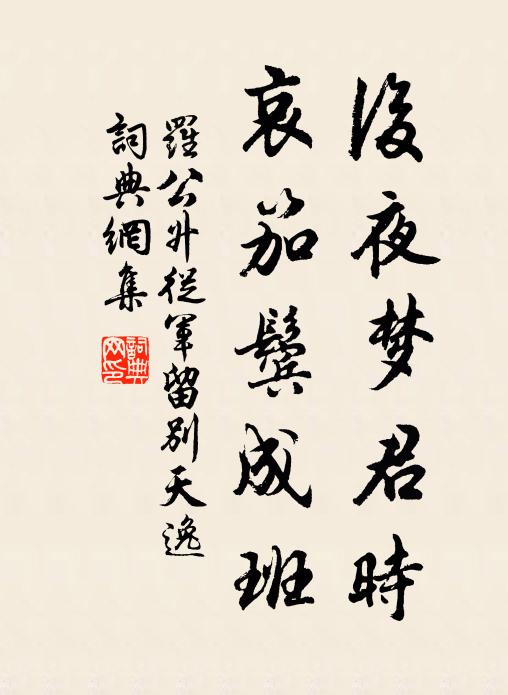 後夜梦君時
哀笳鬓成班
羅公升從軍留別天逸
詞典網集
詞典
网印